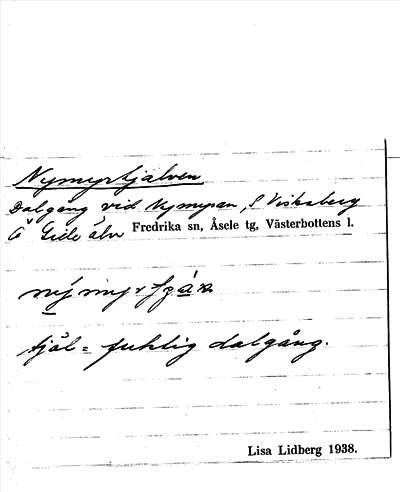 Nymyrtjälven
Dalgång vid Nymyran, S Viskaberg
å Gide älv Fredrika sn, Åsele tg, Västerbottens l.
tjäl = fuktig dalgång.
Lisa Lidberg 1938.